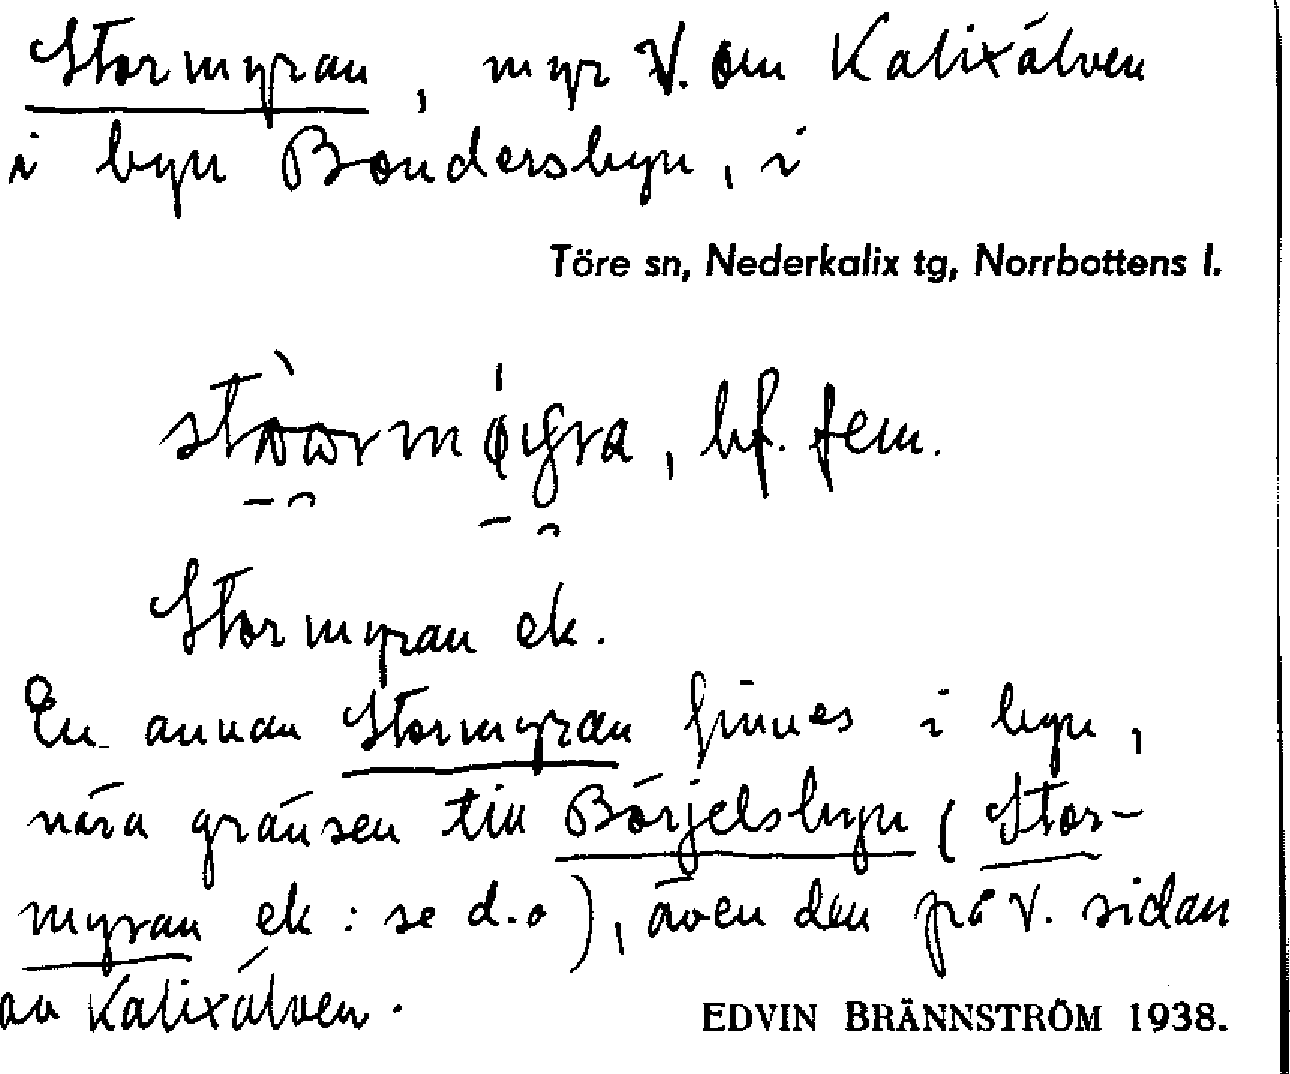 Stormyran, myr V. om Kalixälven
i byn Bondersbyn, i
Töre sn, Nederkalix tg, Norrbottens l.
bf. fem.
Stormyran ek.
En annan Stormyran finnes i byn,
nära gränsen till Börjelsbyn (Stor-
myran ek: se d.o), även den på V. sidan
av Kalixälven.
EDVIN BRÄNNSTRÖM 1938.